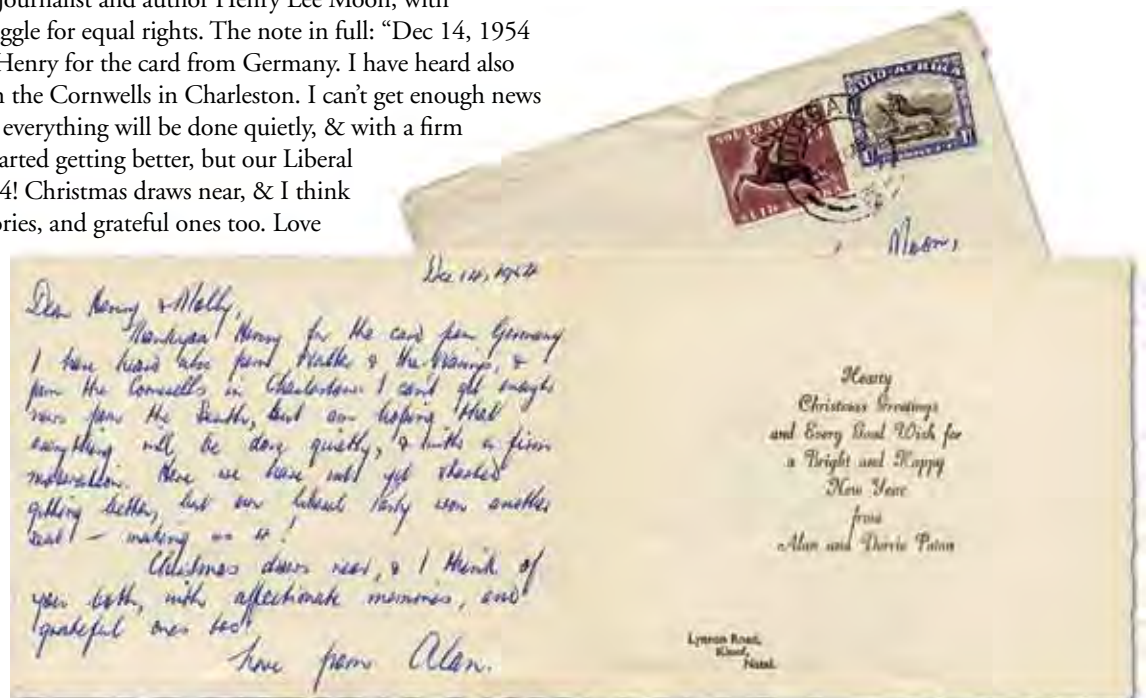 journalist and author Henry Lee Moon, with
ggle for equal rights. The note in full: “Dec 14, 1954
Henry for the card from Germany. I have heard also
n the Cornwells in Charleston. I can’t get enough news
everything will be done quietly, & with a firm
arted getting better, but our Liberal
4! Christmas draws near, & I think
ories, and grateful ones too. Love
SUID-AFRIKA
Moon,
Dec 14, 1954
Dear Henry & Molly,
Thankyou Henry for the card from Germany
I have heard also from Walter & the &
from the Cornwells in Charleston. I can't get enough
news from the South, but am hoping that
everything will be done quietly, & with a firm
moderation. Here we have not yet started
getting better, but our Liberal Party won another
seat - making us 4!
Christmas draws near, & I think of
you both, with affectionate memories, and
grateful ones too.
Love from Alan.
Hearty
Christmas Greetings
and Every Good Wish for
a Bright and Happy
New Year
from
Alan and Dorrie Paton
Lynton Road,
Kloof,
Natal.